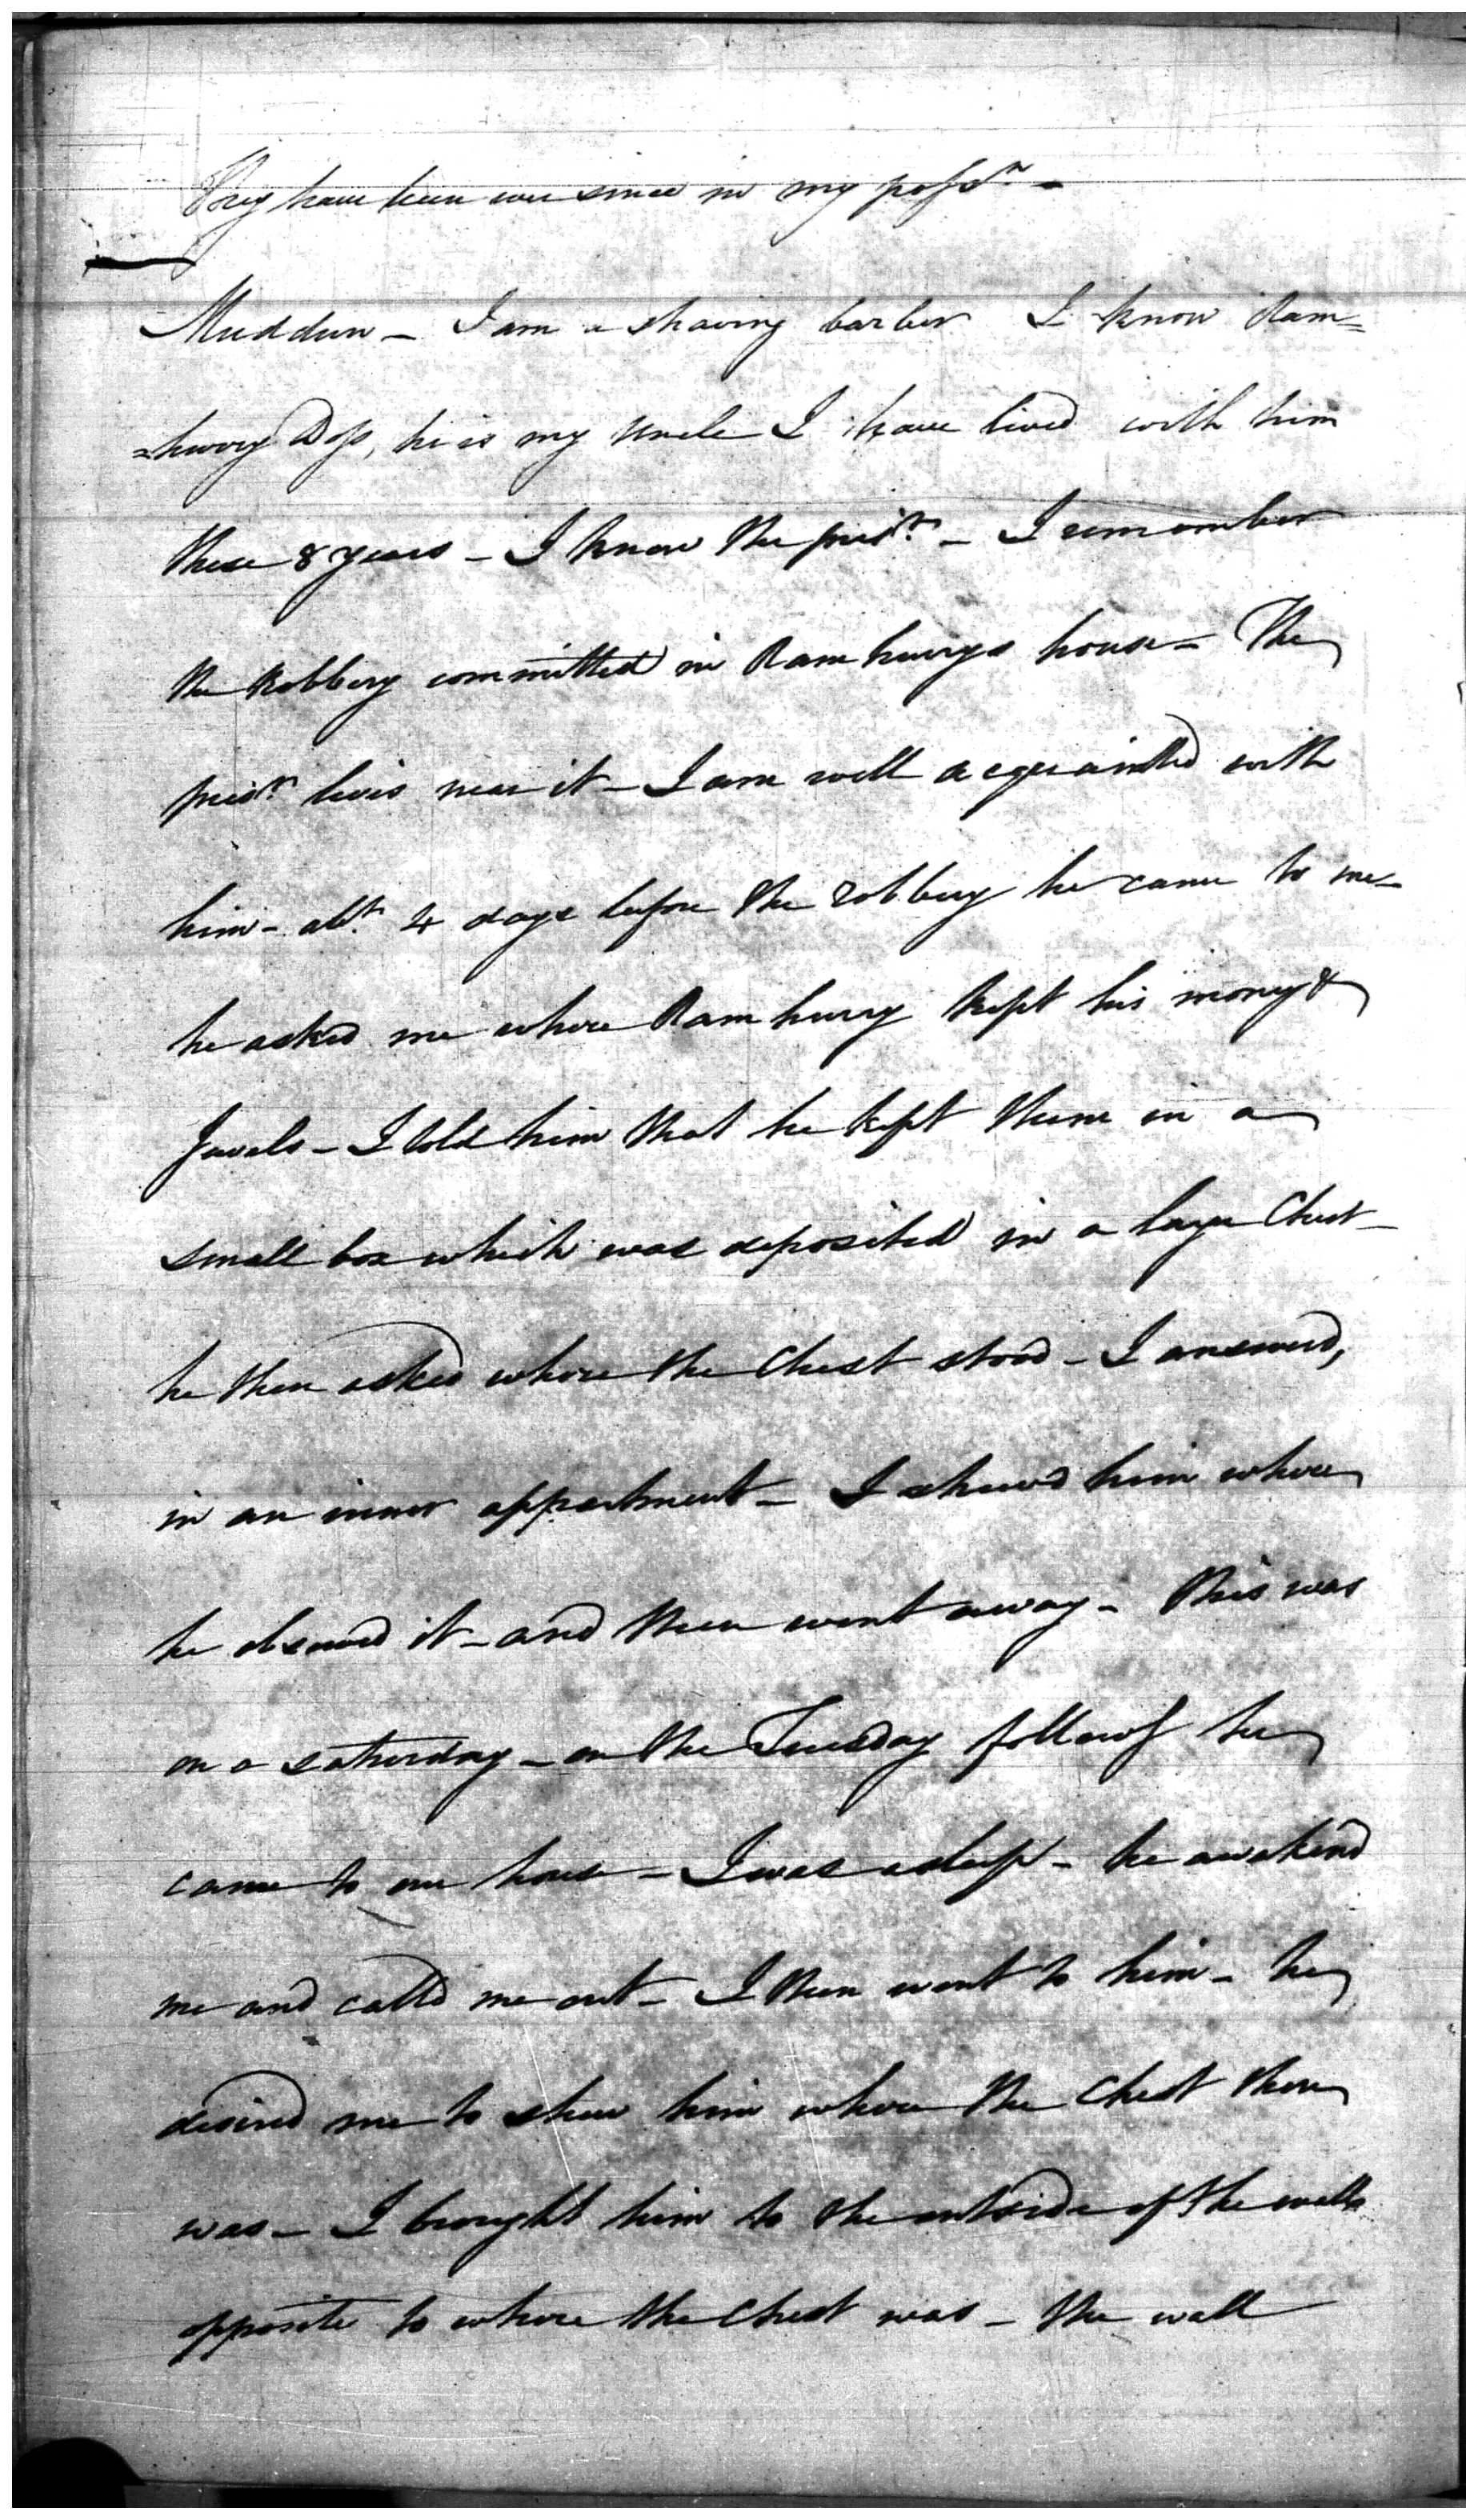 They have been ever since in my possn. -
Muddun - I am a shaving barber I know Ram=
=hurry Doss, he is my Uncle I have lived with him
these 8 years - I know the prisr. - I remember
the Robbery committed in Ramhurrys house - The
prisr. lives near it - I am well acquainted with
him - abt. 4 days before the robbery he came to me -
he asked me where Ramhurry kept his money &
Jewels - I told him that he kept them in a
small box which was deposited in a large Chest -
he then asked where the Chest stood - I answerd,
in an inner appartment - I shewd him where
he observed it - and then went away - This was
on a saturday - on the Tuesday followg he
came to our house - I was asleep - he awakend
me and calld me out - I then went to him - he
desired me to shew him where the Chest then
was - I brought him to the outside of the walls
opposite to where the Chest was - the wall